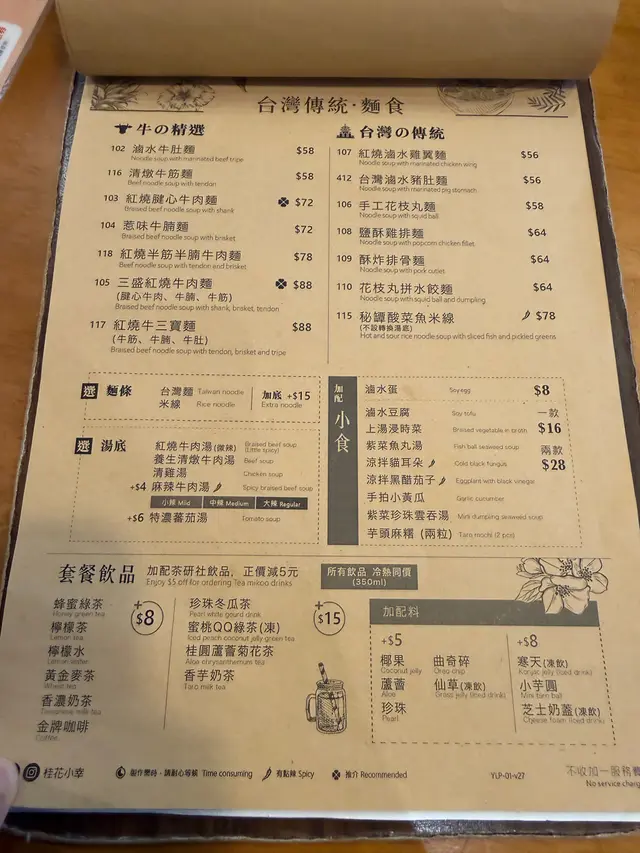 台灣傳統·麵食
牛の精選
102 滷水牛肚麵 $58
Noodle soup with marinated beef tripe
116 清燉牛筋麵 $58
Beef noodle soup with tendon
103 紅燒腱心牛肉麵 $72
Braised beef noodle soup with shank
104 惹味牛腩麵 $72
Braised beef noodle soup with brisket
118 紅燒半筋半腩牛肉麵 $78
Beef noodle soup with tendon and brisket
105 三盛紅燒牛肉麵 $88
(腱心牛肉、牛腩、牛筋)
Braised beef noodle soup with shank, brisket, tendon
117 紅燒牛三寶麵 $88
(牛筋、牛腩、牛肚)
Braised beef noodle soup with tendon, brisket and tripe
台灣の傳統
107 紅燒滷水雞翼麵 $56
Noodle soup with marinated chicken wing
412 台灣滷水豬肚麵 $56
Noodle soup with marinated pig stomach
106 手工花枝丸麵 $58
Noodle soup with squid ball
108 鹽酥雞排麵 $64
Noodle soup with popcorn chicken fillet
109 酥炸排骨麵 $64
Noodle soup with pork cutlet
110 花枝丸拼水餃麵 $64
Noodle soup with squid ball and dumpling
115 秘罈酸菜魚米線 $78
(不設轉換湯底)
Hot and sour rice noodle soup with sliced fish and pickled greens
選 麵條
台灣麵 Taiwan noodle
米線 Rice noodle
加底 +$15
Extra noodle
選 湯底
紅燒牛肉湯(微辣) Braised beef soup (Little spicy)
養生清燉牛肉湯 Beef soup
清雞湯 Chicken soup
+$4 麻辣牛肉湯 Spicy braised beef soup
小辣 Mild 中辣 Medium 大辣 Regular
+$6 特濃蕃茄湯 Tomato soup
加配 小食
滷水蛋 Soy egg $8
滷水豆腐 Soy tofu
上湯浸時菜 Braised vegetable in broth
紫菜魚丸湯 Fish ball seaweed soup
涼拌貓耳朵 Cold black fungus
涼拌黑醋茄子 Eggplant with black vinegar
手拍小黃瓜 Garlic cucumber
紫菜珍珠雲吞湯 Mini dumping seaweed soup
芋頭麻糬 (兩粒) Taro mochi (2 pcs)
一款
$16
兩款
$28
套餐飲品
加配茶研社飲品，正價減5元
Enjoy $5 off for ordering Tea mikoo drinks
所有飲品 冷熱同價
(350ml)
蜂蜜綠茶
Honey green tea
檸檬茶
Lemon tea
檸檬水
Lemon water
黃金麥茶
Wheat tea
香濃奶茶
Taiwanese milk tea
金牌咖啡
Coffee
+$8
珍珠冬瓜茶
Pearl white gourd drink
蜜桃QQ綠茶(凍)
Iced peach coconut jelly green tea
桂圓蘆薈菊花茶
Aloe chrysanthemum tea
香芋奶茶
Taro milk tea
+$15
加配料
+$5
椰果
Coconut jelly
蘆薈
Aloe
珍珠
Pearl
曲奇碎
Oreo chip
仙草(凍飲)
Grass jelly (iced drink)
+$8
寒天(凍飲)
Konjac jelly (iced drink)
小芋圓
Mini taro ball
芝士奶蓋(凍飲)
Cheese foam (iced drink)
桂花小幸
製作需時，請耐心等候 Time consuming
有點辣 Spicy
推介 Recommended
YLP-01-v27
不收加一服務費
No service charg